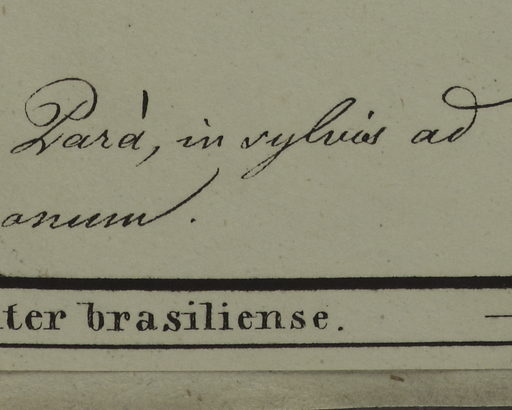 Pará, in sylvis ad
anum.
ter brasiliense.